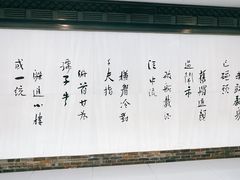 敢翻身
已碰頭
舊帽遮顏
過鬧市
破船載酒
泛中流
橫眉冷對
千夫指
俯首甘為
孺子牛
躲進小樓
成一統